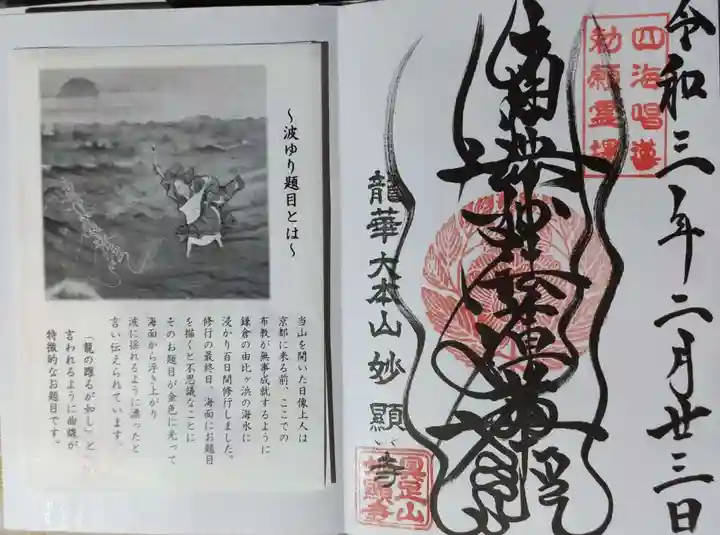 〜波ゆり題目とは〜
当山を開いた日像上人は
京都に来る前、ここでの
布教が無事成就するように
鎌倉の由比ヶ浜の海水に
浸かり百日間修行しました。
修行の最終日、海面にお題目
を描くと不思議なことに
そのお題目が金色に光って
海面から浮き上がり
波に揺れるように漂ったと
言い伝えられています。
「龍の躍るが如し」と
言われるように曲線が
特徴的なお題目です。
令和三年二月廿三日
四海唱導
勅願霊場
南無妙法蓮華経
龍華大本山妙顯寺
具足山
妙顯寺